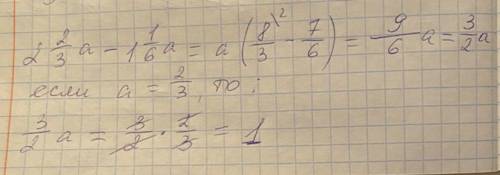 2 2/3 a - 1 1/6 a = a (8/3\² - 7/6) = 9/6 a = 3/2 a
если a = 2/3, то:
3/2 a = 3/2 · 2/3 = 1